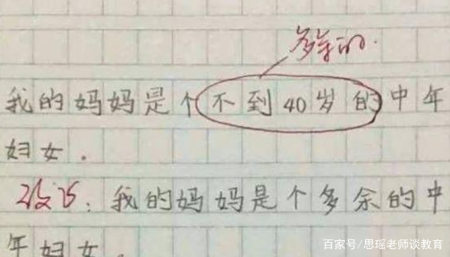 多余的.
我的妈妈是个不到40岁的中年
妇女.
改巧:我的妈妈是个多余的中
年妇女.
百家号/思瑶老师谈教育